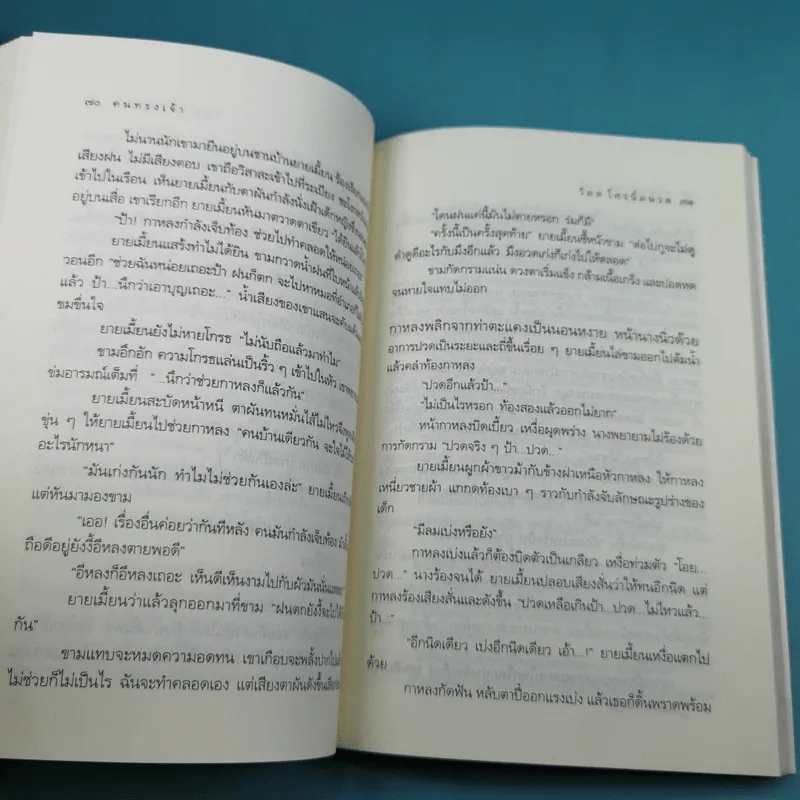 ๗๐ คนทรงเจ้า
ไม่นานนักเขามายืนอยู่บนชานบ้านยายเมี้ยน
เสียงฝน ไม่มีเสียงตอบ เขาถือวิสาสะเข้าไปที่ระเบียง
เข้าไปในเรือน เห็นยายเมี้ยนกับตาผันกำลังนั่งเฝ้าเด็กหญิง
อยู่บนเสื่อ เขาเรียกอีก ยายเมี้ยนหันมาตวาดตาเขียว
"ป้า! กาหลงกำลังเจ็บท้อง ช่วยไปทำคลอดให้หน่อย
ยายเมี้ยนแสร้งทำไม่ได้ยิน ขามกวาดน้ำฝนที่ใบหน้า
วอนอีก "ช่วยฉันหน่อยเถอะป้า ฝนก็ตก จะไปหาหมอที่อำเภอก็
แล้ว ป้า...นึกว่าเอาบุญเถอะ..." น้ำเสียงของเขาแสนจะ
ขมขื่นใจ
ยายเมี้ยนยังไม่หายโกรธ "ไม่นับถือแล้วมาทำไม"
ขามอึกอัก ความโกรธแล่นเป็นริ้ว ๆ เข้าไปในหัว
ข่มอารมณ์เต็มที่ "...นึกว่าช่วยกาหลงก็แล้วกัน"
ยายเมี้ยนสะบัดหน้าหนี ตาผันทนหมั่นไส้ไม่ไหวจึง
ขุ่น ๆ ให้ยายเมี้ยนไปช่วยกาหลง "คนบ้านเดียวกัน จะใจไม้ไส้
อะไรนักหนา"
"มันเก่งกันนัก ทำไมไม่ช่วยกันเองล่ะ" ยายเมี้ยน
แต่หันมามองขาม
"เออ! เรื่องอื่นค่อยว่ากันทีหลัง คนมันกำลังเจ็บท้อง
ถือดีอยู่ยังงี้อีหลงตายพอดี"
"อีหลงก็อีหลงเถอะ เห็นดีเห็นงามไปกับผัวมันนั่น
ยายเมี้ยนว่าแล้วลุกออกมาที่ขาม "ฝนตกยังงี้จะไป
กัน"
ขามแทบจะหมดความอดทน เขาเกือบจะพลั้งปาก
ไม่ช่วยก็ไม่เป็นไร ฉันจะทำคลอดเอง แต่เสียงตาผันดังขึ้น
วิมล ไทรนิ่มนวล ๗๑
"โดนฝนแค่นี้มันไม่ตายหรอก ร่มก็มี"
"ครั้งนี้เป็นครั้งสุดท้าย" ยายเมี้ยนชี้หน้าขาม "ต่อไปกูจะไม่ดู
ดำดูดีอะไรกับมึงอีกแล้ว มึงอวดเก่งก็เก่งไปให้ตลอด"
ขามกัดกรามแน่น ดวงตาเริ่มแข็ง กล้ามเนื้อเกร็ง และปอดหด
จนหายใจแทบไม่ออก
กาหลงพลิกจากท่าตะแคงเป็นนอนหงาย หน้านางนิ่วด้วย
อาการปวดเป็นระยะและถี่ขึ้นเรื่อย ๆ ยายเมี้ยนไล่ขามออกไปต้มน้ำ
แล้วคลำท้องกาหลง
"ปวดอีกแล้วป้า..."
"ไม่เป็นไรหรอก ท้องสองแล้วออกไม่ยาก"
หน้ากาหลงบิดเบี้ยว เหงื่อผุดพร่าง นางพยายามไม่ร้องด้วย
การกัดกราม "ปวดจริง ๆ ป้า...ปวด..."
ยายเมี้ยนผูกผ้าขาวม้ากับข้างฝาเหนือหัวกาหลง ให้กาหลง
เหนี่ยวชายผ้า แกกดท้องเบา ๆ ราวกับกำลังจับลักษณะรูปร่างของ
เด็ก
"มีลมเบ่งหรือยัง"
กาหลงเบ่งแล้วก็ต้องบิดตัวเป็นเกลียว เหงื่อท่วมตัว "โอย...
ปวด..." นางร้องจนได้ ยายเมี้ยนปลอบเสียงสั่นว่าให้ทนอีกนิด แต่
กาหลงร้องเสียงสั่นและดังขึ้น "ปวดเหลือเกินป้า...ปวด...ไม่ไหวแล้ว...
ป้า..."
"อีกนิดเดียว เบ่งอีกนิดเดียว เอ้า...!" ยายเมี้ยนเหงื่อแตกไป
ด้วย
กาหลงกัดฟัน หลับตาปี๋ออกแรงเบ่ง แล้วเธอก็ดิ้นพราดพร้อม